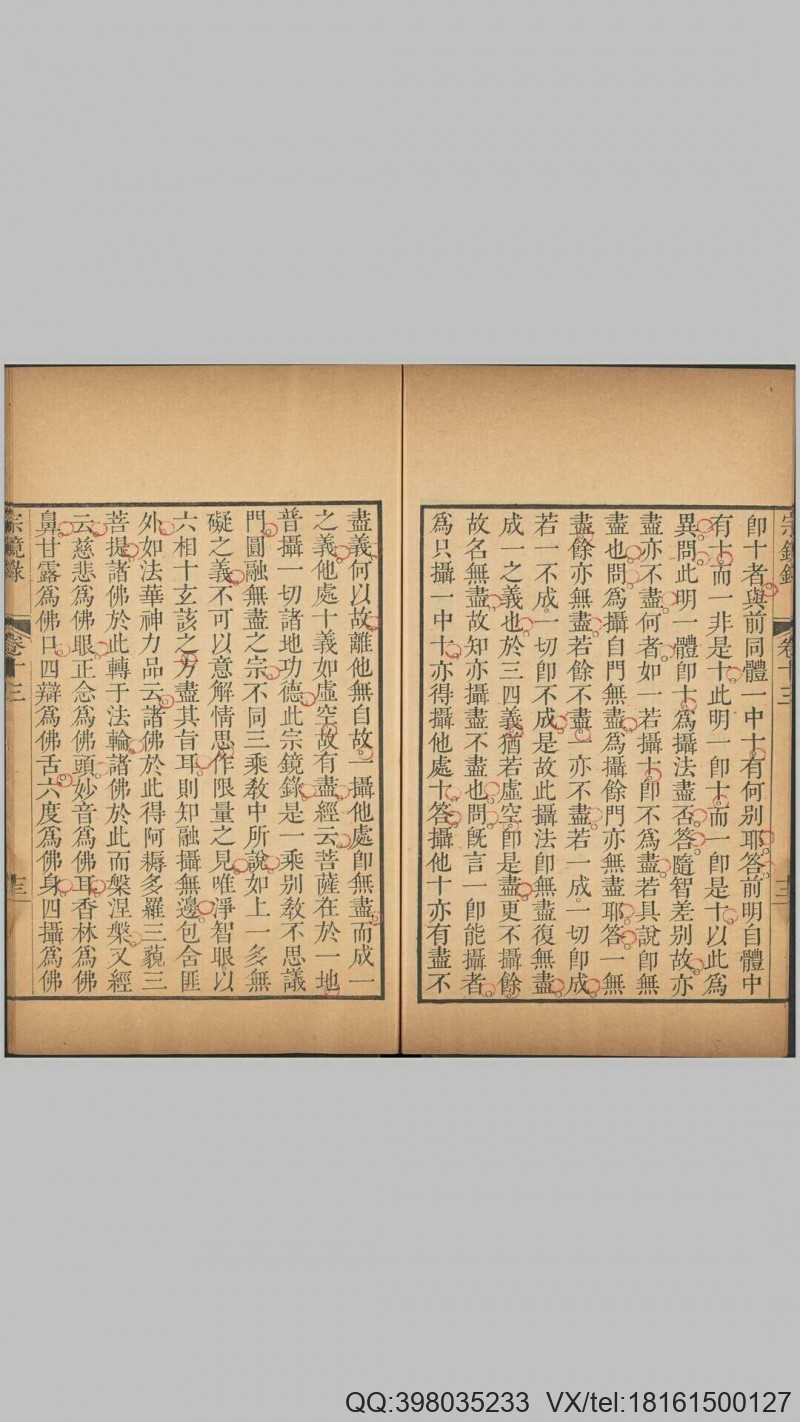 宗鏡錄 卷十三 三
卽十者與前同體一中十有何别耶答前明自體中
有十而一非是十此明一卽十而一卽是十以此爲
異問此明一體卽十爲攝法盡否答隨智差别故亦
盡亦不盡何者如一若攝十卽不爲盡若具說卽無
盡也問爲攝自門無盡爲攝餘門亦無盡耶答一無
盡餘亦無盡若餘不盡一亦不盡若一成一切卽成
若一不成一切卽不成是故此攝法卽無盡復無盡
成一之義也於三四義猶若虛空卽是盡更不攝餘
故名無盡故知亦攝盡不盡也問旣言一卽能攝者
爲只攝一中十亦得攝他處十答攝他十亦有盡不
盡義何以故離他無自故一攝他處卽無盡而成一
之義他處十義如虛空故有盡經云菩薩在於一地
普攝一切諸地功德此宗鏡錄是一乘别教不思議
門圓融無盡之宗不同三乘教中所說如上一多無
礙之義不可以意解情思作限量之見唯淨智眼以
六相十玄該之方盡其旨耳則知融攝無邊包含匪
外如法華神力品云諸佛於此得阿耨多羅三藐三
菩提諸佛於此轉于法輪諸佛於此而槃涅槃又經
云慈悲爲佛眼正念爲佛頭妙音爲佛耳香林爲佛
鼻甘露爲佛口四辯爲佛舌六度爲佛身四攝爲佛
宗鏡錄 卷十三 三
QQ:398035233 VX/tel:18161500127